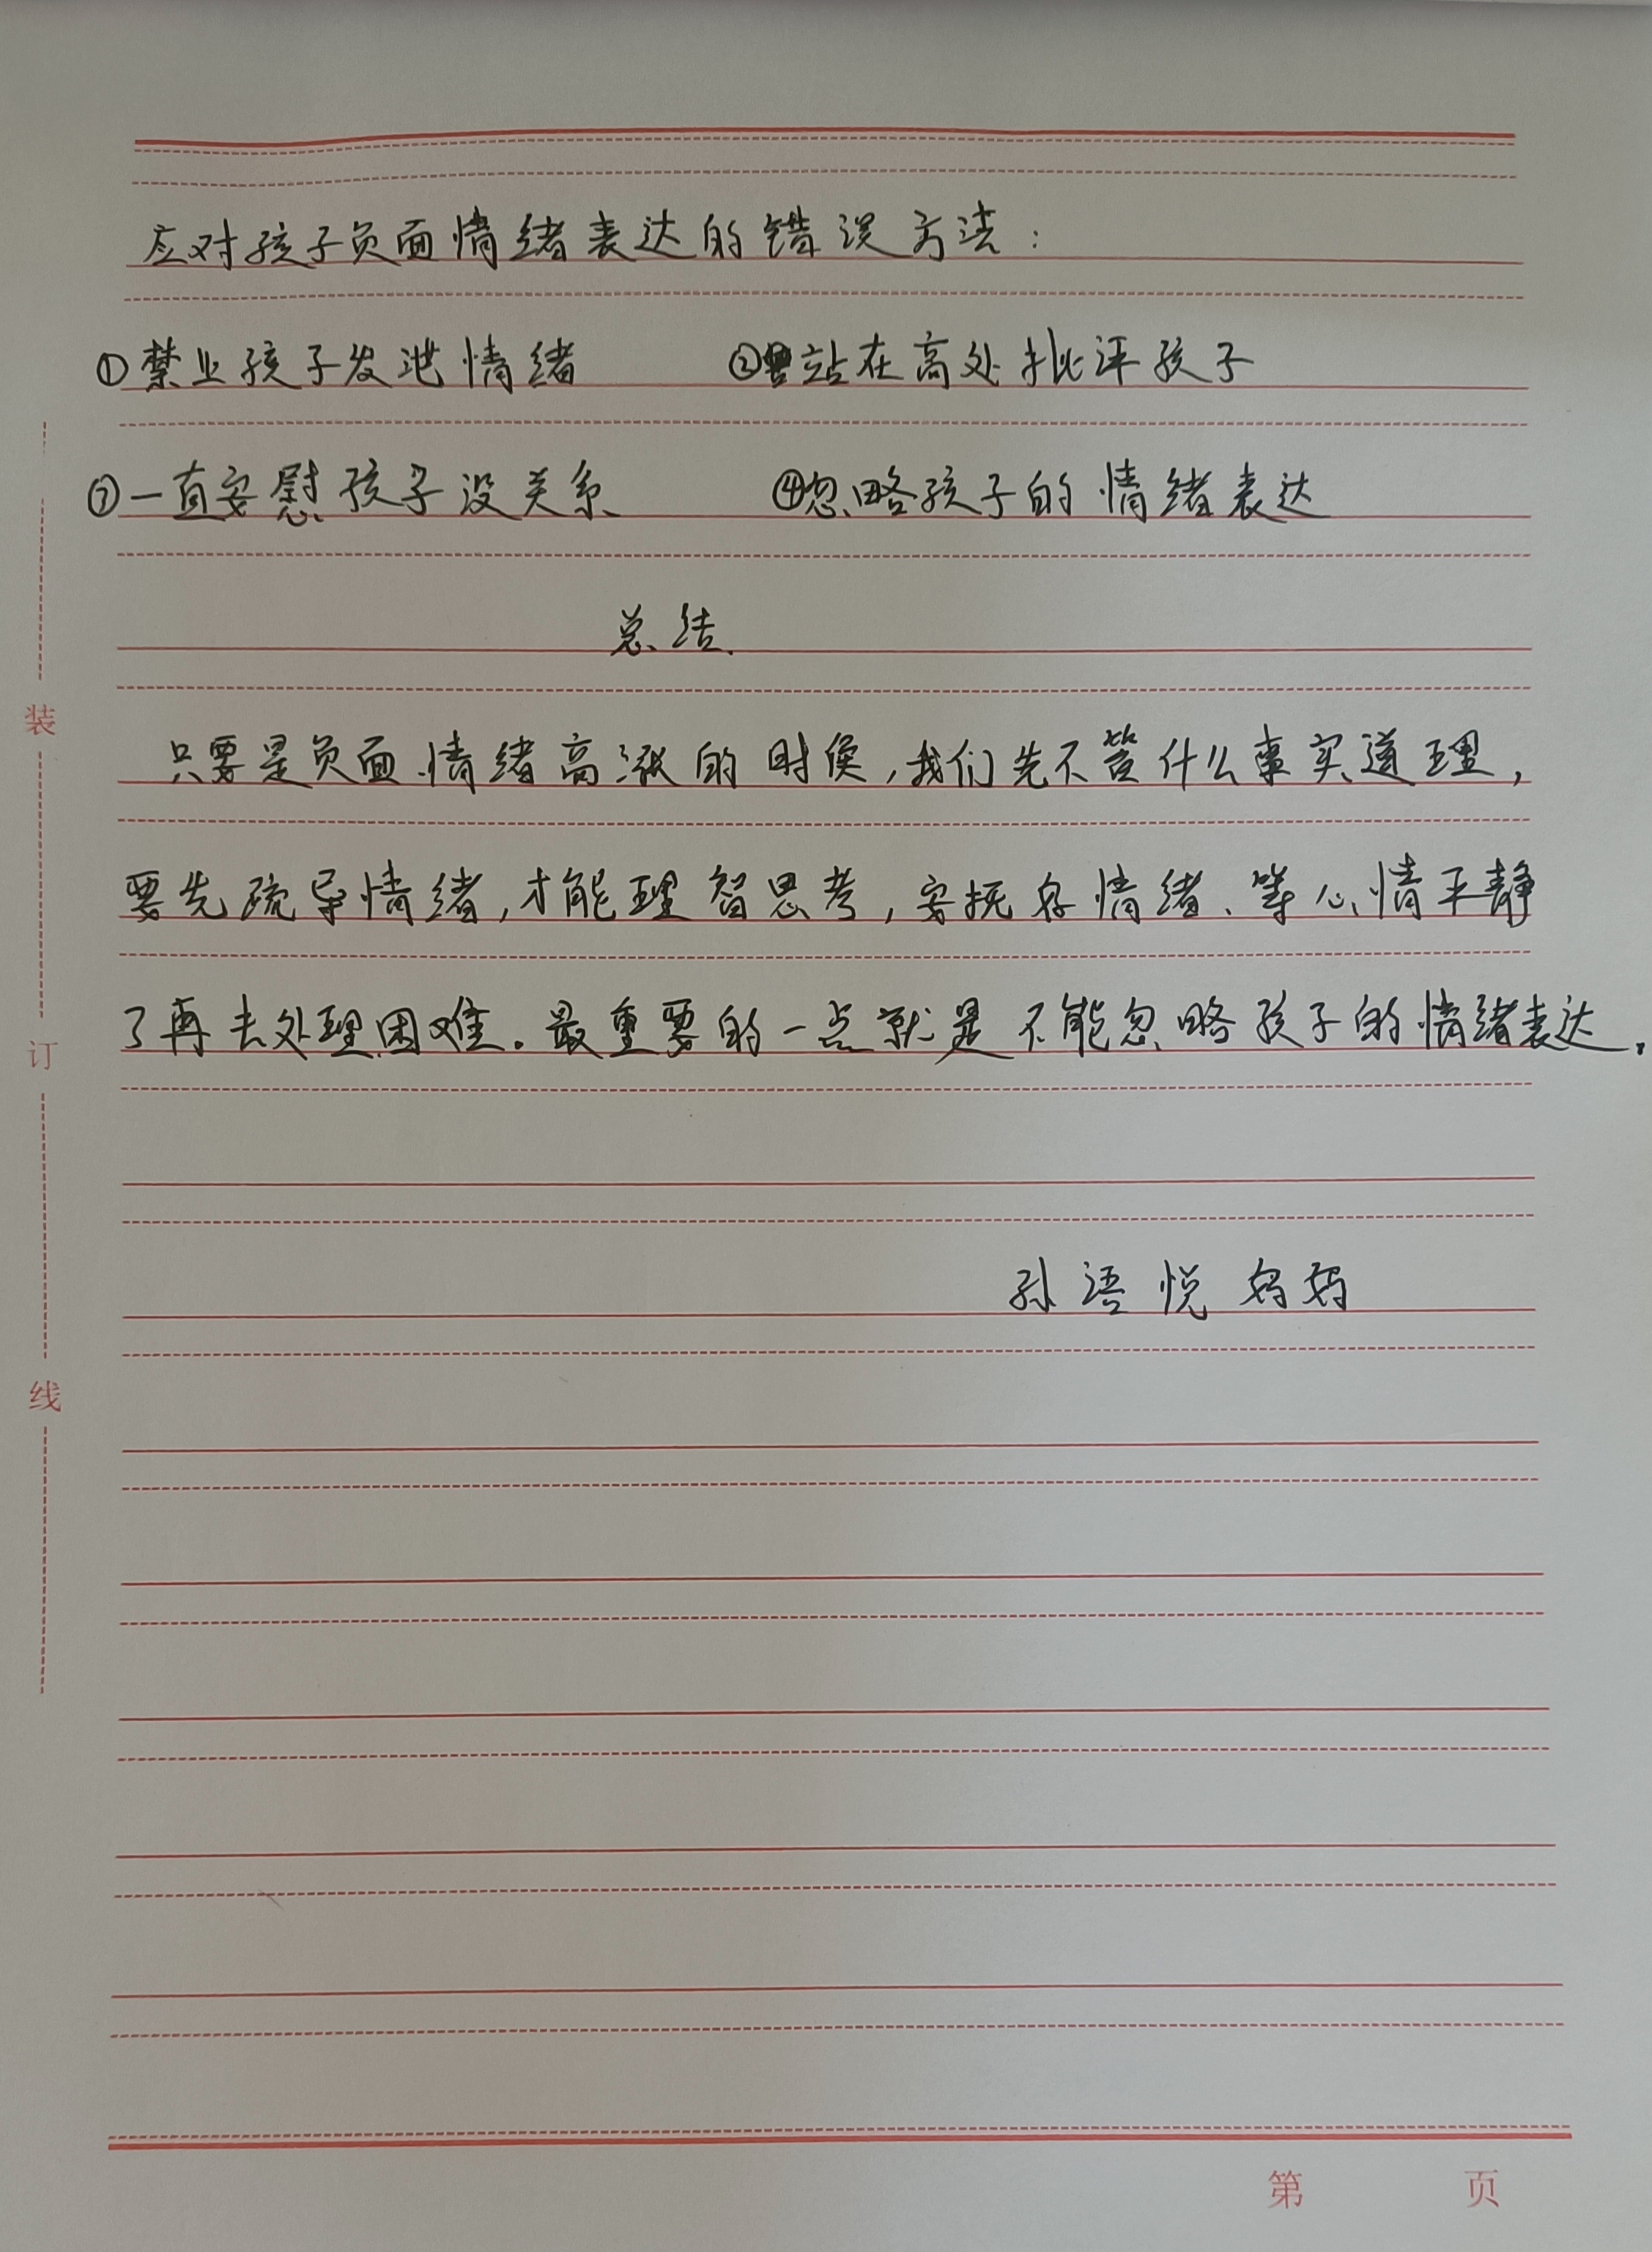 应对孩子负面情绪表达的错误方法：
①禁止孩子发泄情绪 ②站在高处批评孩子
③一直安慰孩子没关系 ④忽略孩子的情绪表达
总结.
只要是负面情绪高涨的时候，我们先不管什么事实道理，
要先疏导情绪，才能理智思考，安抚好情绪、等心情平静
了再去处理困难。最重要的一点就是不能忽略孩子的情绪表达。
孙语悦妈妈
装
订
线
第 页